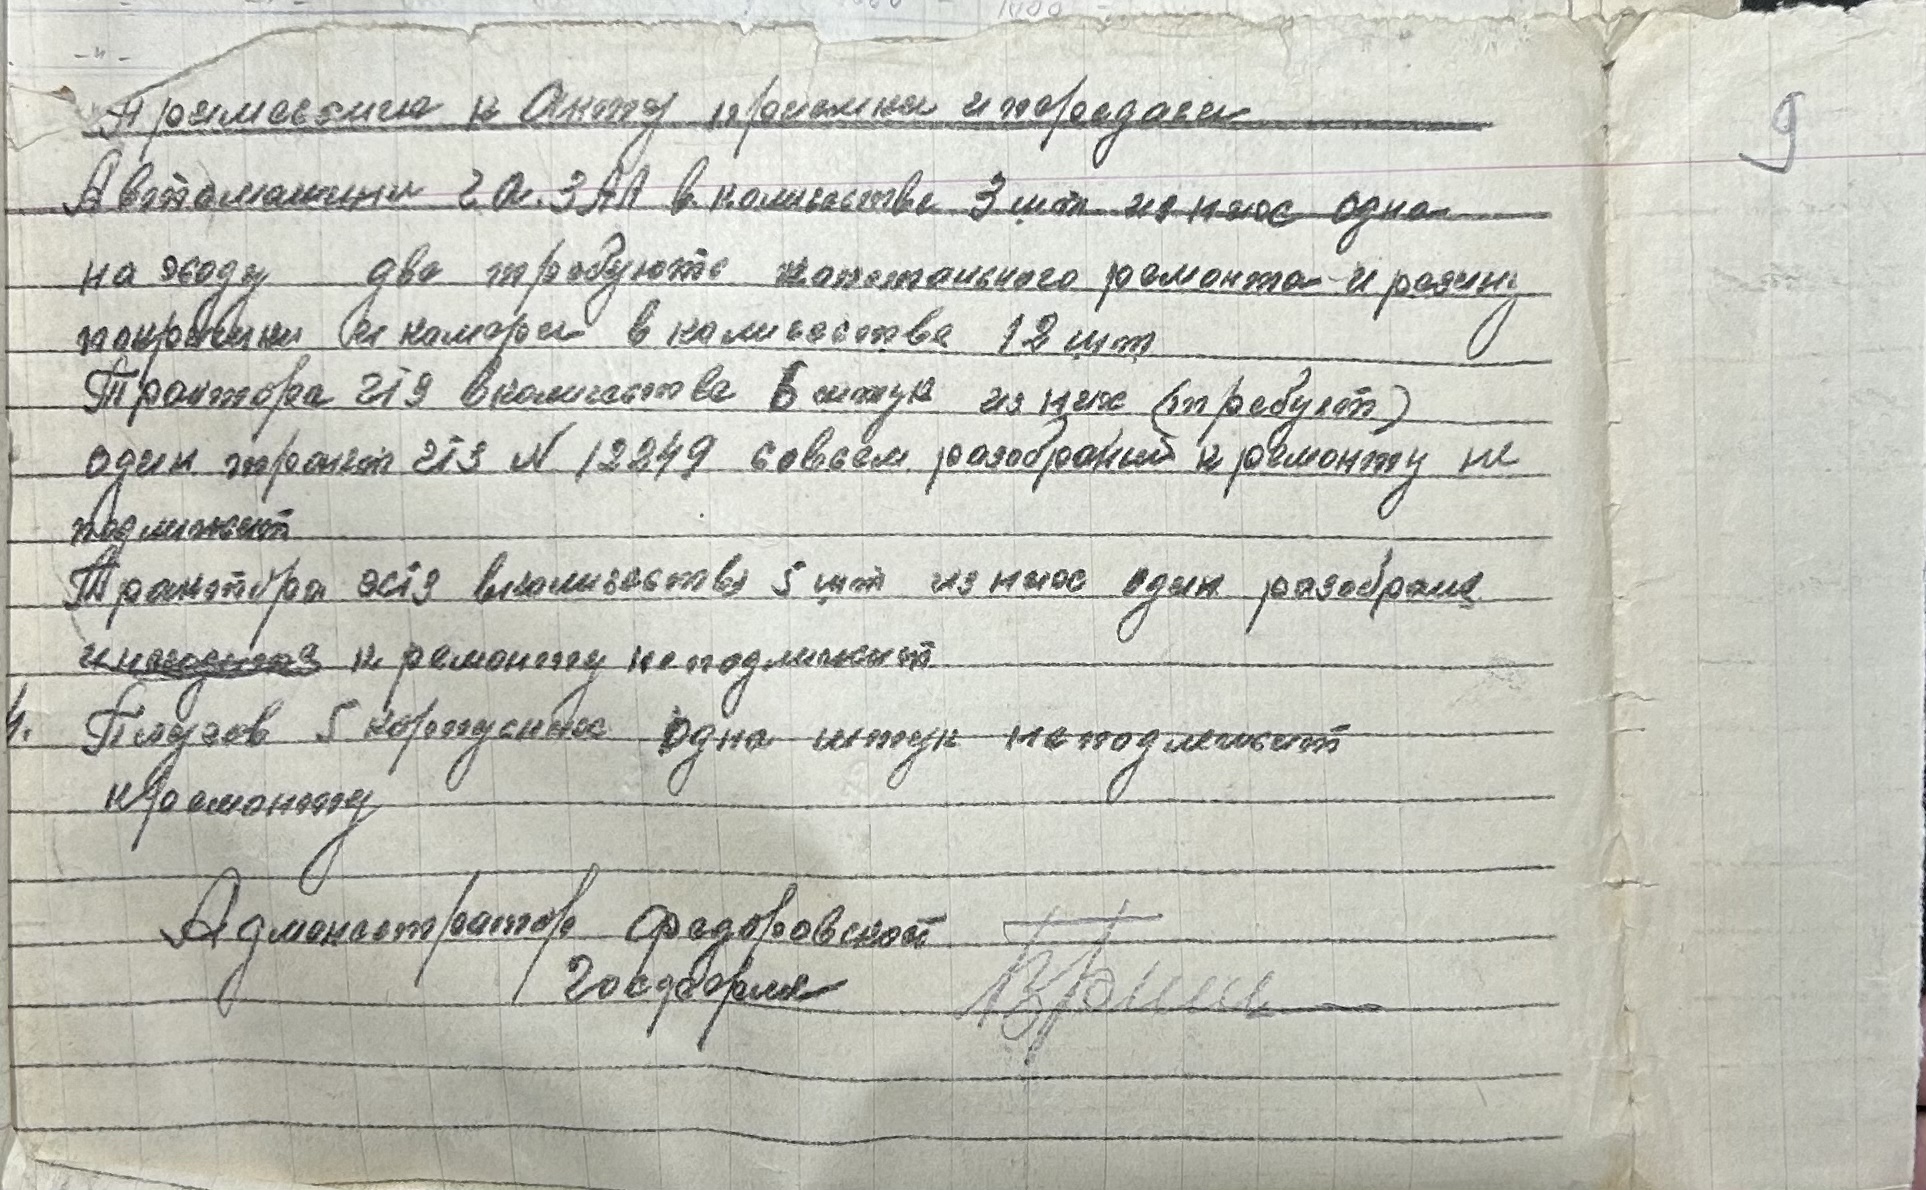 Примечения к Акту приемки и передаси
Автомашини ГА.ЗАА в количестве 3 шт из них одна
на ходу две требуюте капетального ремонта и резину
покришки и камеры в количестве 12 шт
Трактора ЧТЗ в количества 6 штук из них (требует)
один тракт ЧТЗ N 12249 совсем разобраний к ремонту не
подлижит
Трактора ХТЗ в количество 5 шт из них один разобрана
к ремонту не подлижит
4. Плугов 5 корпусних одна штук не подлежит
к ремонту
Адмонестратор Федоровской
Госдформы
9